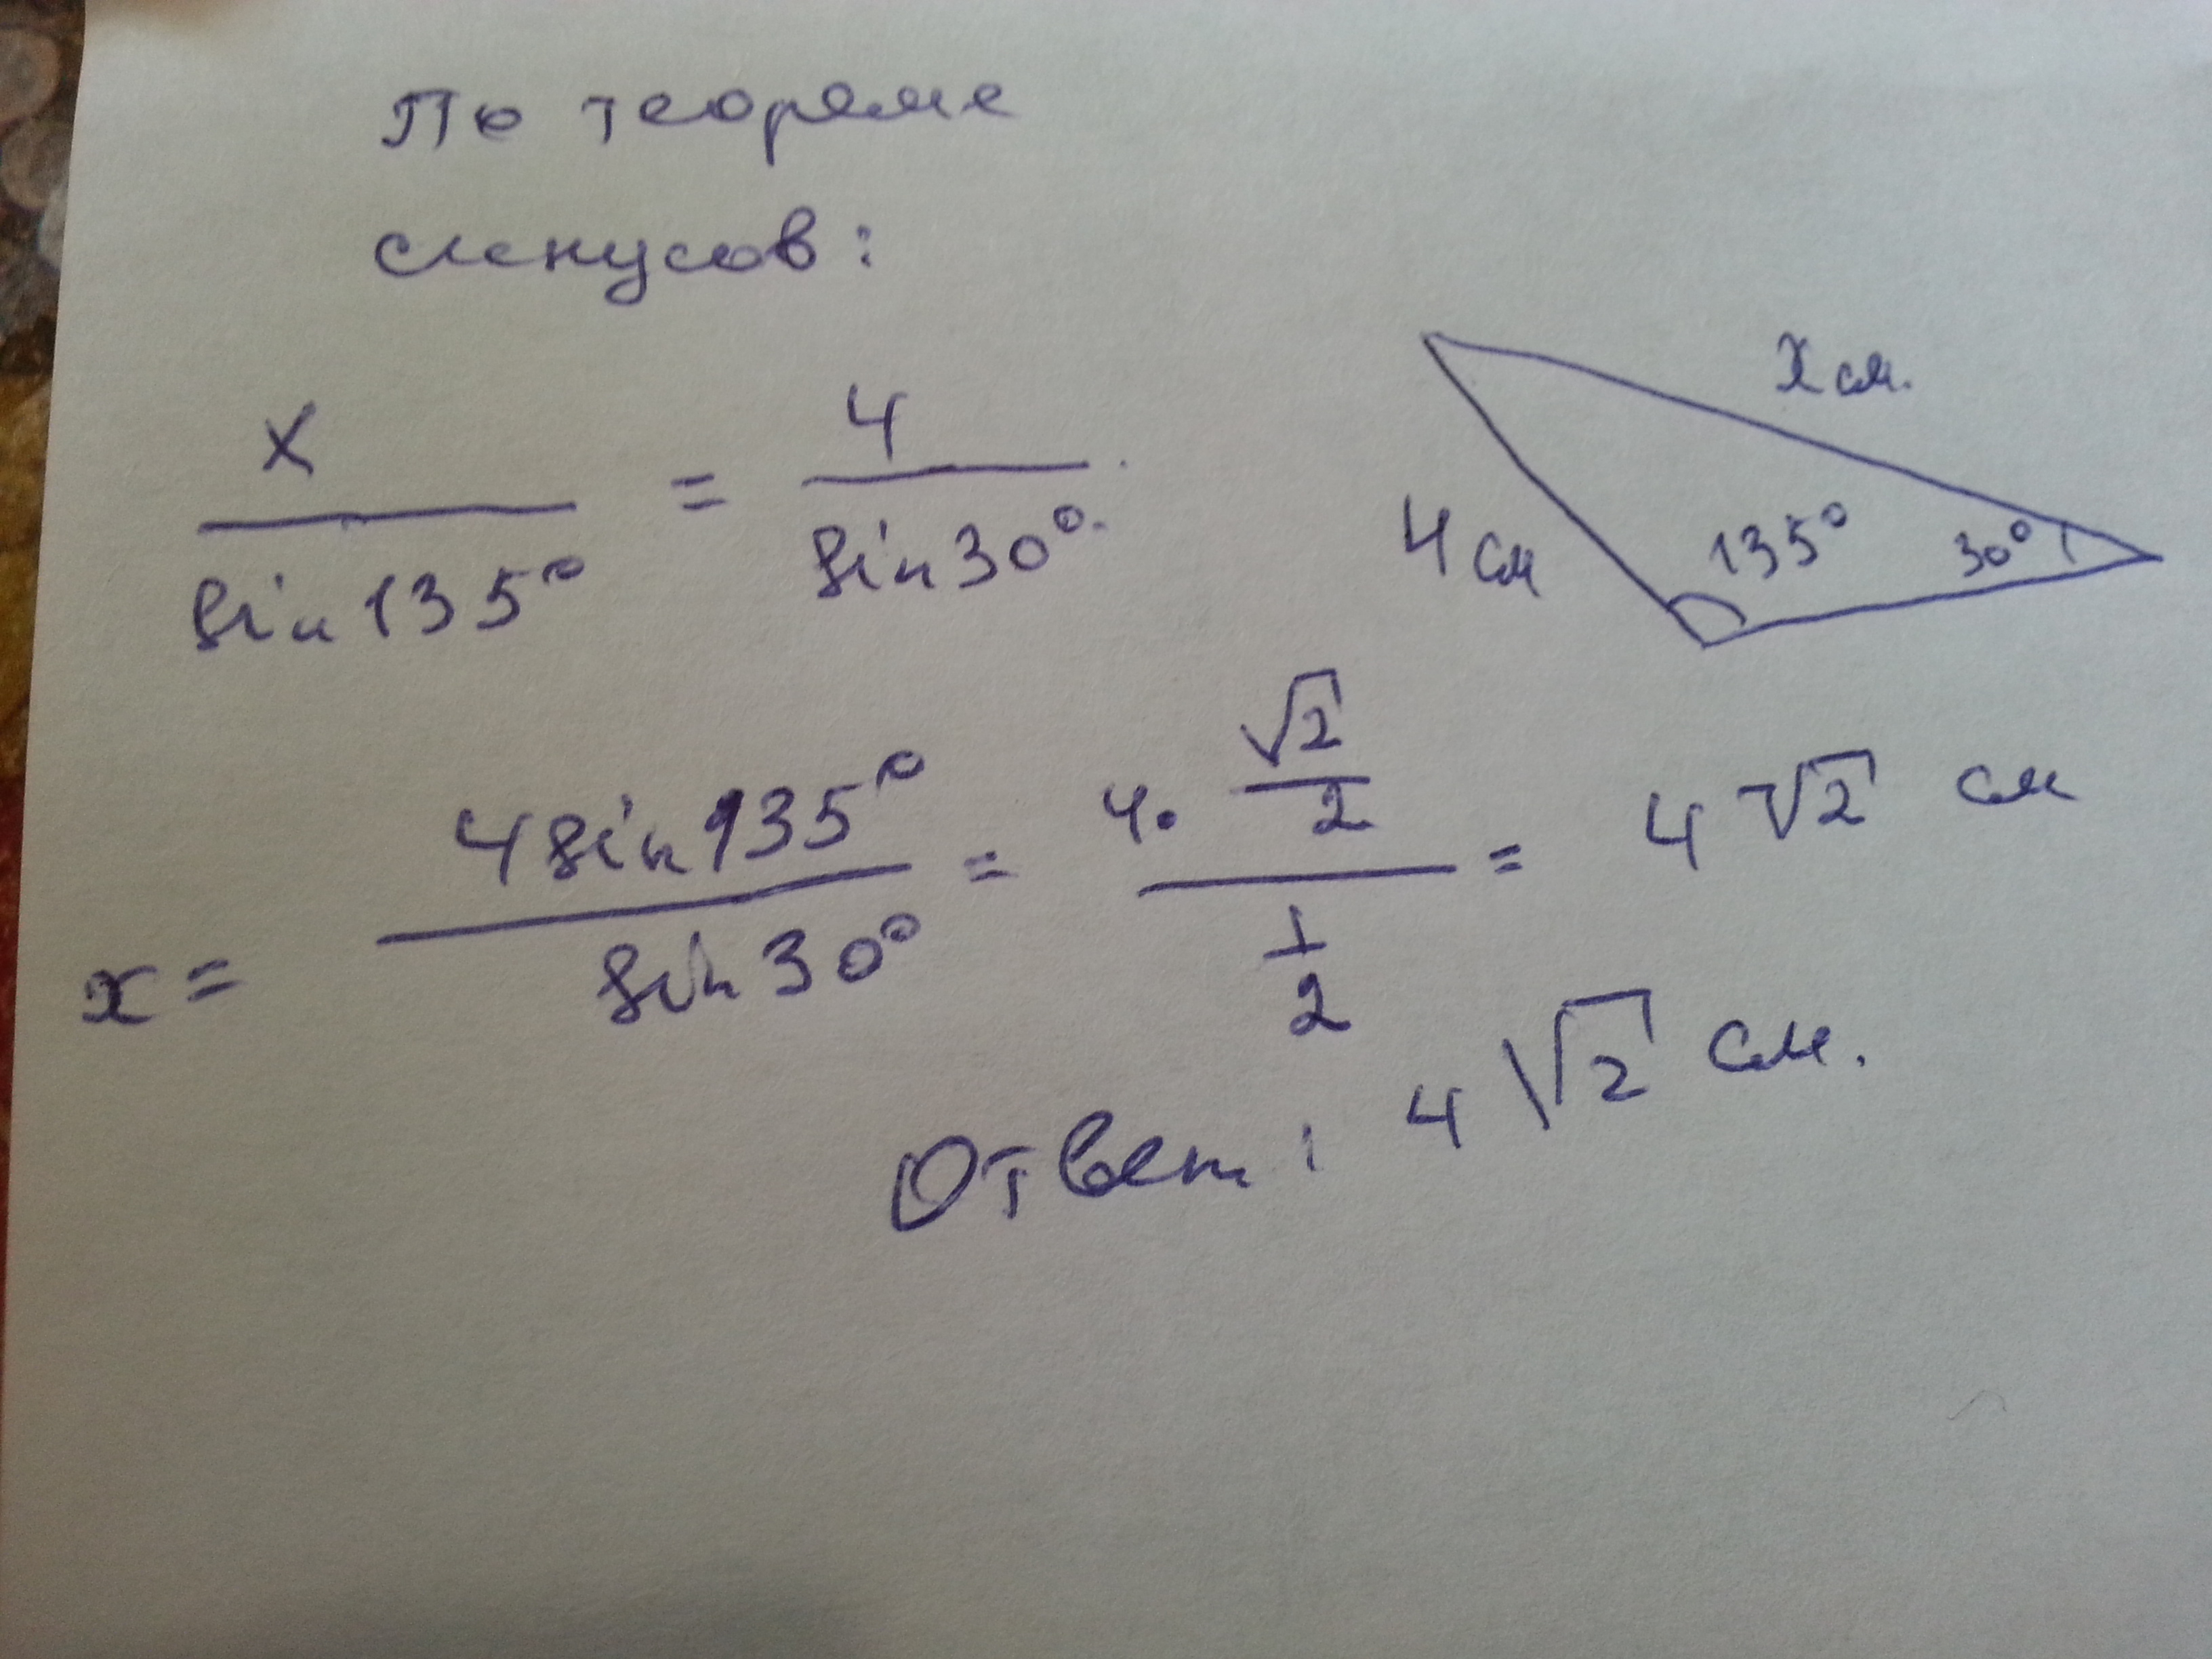 По теореме
синусов:
x / sin135° = 4 / sin30°
x см.
4 см
135°
30°
x = 4sin135° / sin30° = 4 · √2/2 / 1/2 = 4√2 см
Ответ: 4√2 см.